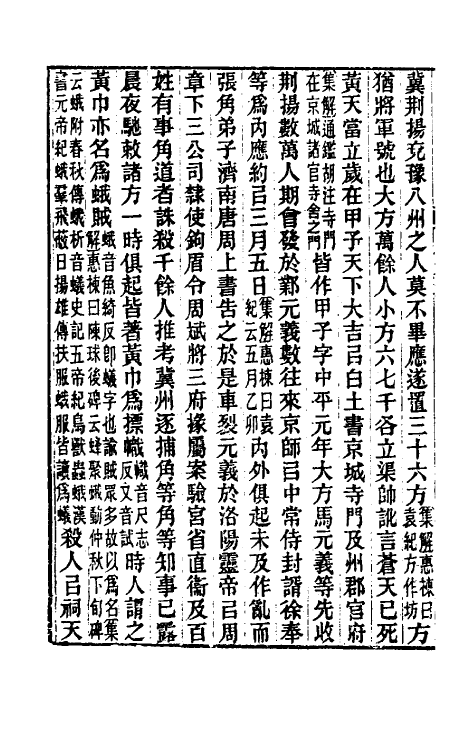 冀荆揚兗豫八州之人莫不畢應遂置三十六方集解惠棟曰袁紀方作坊方
猶將軍號也大方萬餘人小方六七千各立渠帥訛言蒼天已死
黃天當立歲在甲子天下大吉㠯白土書京城寺門及州郡官府
集解通鑑胡注寺門在京城諸官寺舍之門皆作甲子字中平元年大方馬元義等先收
荆揚數萬人期會發於鄴元義數往來京師㠯中常侍封諝徐奉
等爲内應約㠯三月五日集解惠棟曰袁紀云五月乙卯内外俱起未及作亂而
張角弟子濟南唐周上書告之於是車裂元義於洛陽靈帝㠯周
章下三公司隸使鉤盾令周斌將三府掾屬案驗宮省直衞及百
姓有事角道者誅殺千餘人推考冀州逐捕角等角等知事已露
晨夜馳敕諸方一時俱起皆著黃巾爲摽幟幟音尺志反又音試時人謂之
黃巾亦名爲蛾賊蛾音魚綺反卽蟻字也諭賊眾多故以爲名集解惠棟曰陳球後碑云蜂聚蛾動仲秋下旬碑
云蛾附春秋傳蛾析音蟻史記五帝紀鳥獸蟲蛾漢書元帝紀蛾羣飛蔽日揚雄傳扶服蛾服皆讀爲蟻殺人㠯祠天